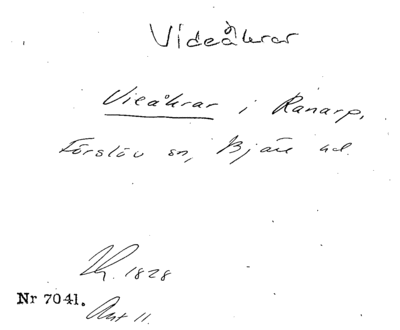 Videåkrar
Vieåkrar i Ranarp,
Förslöv sn, Bjäre hd.
1828
Nr 7041.
Akt 11.